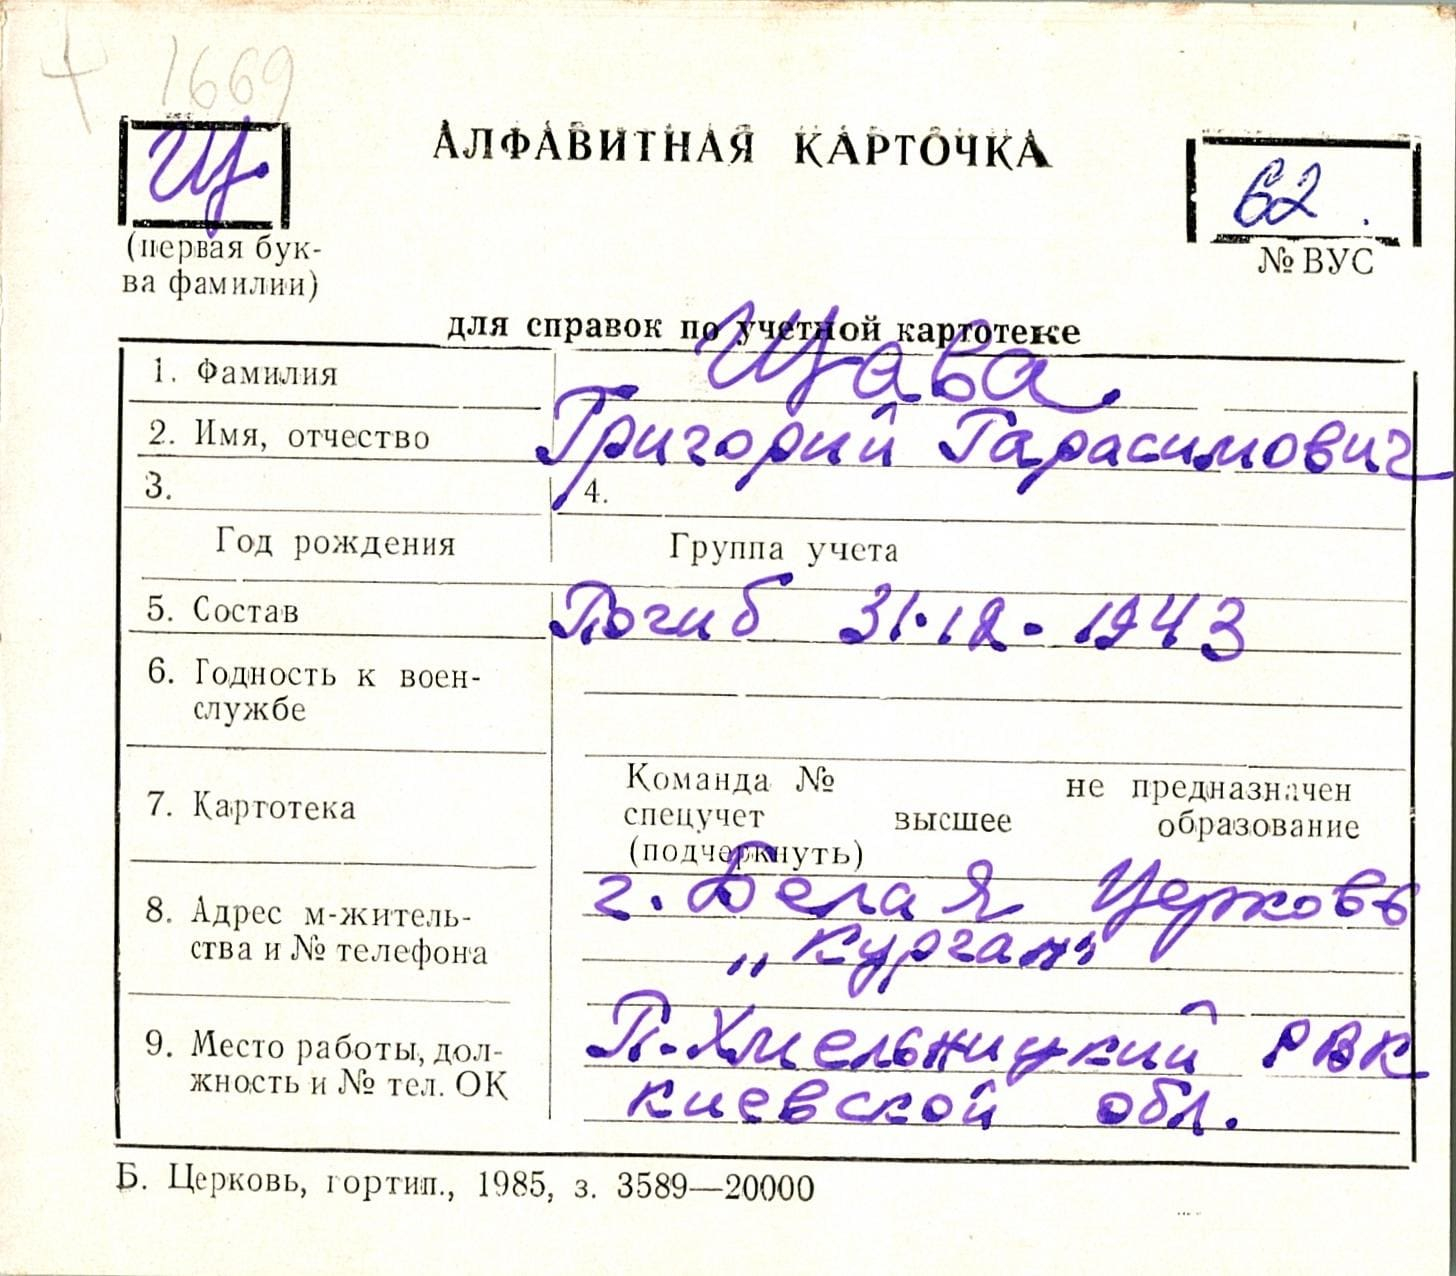 1669
Щ.
АЛФАВИТНАЯ КАРТОЧКА
62.
(первая бук-
ва фамилии)
№ ВУС
для справок по учетной картотеке
1. Фамилия Щава.
2. Имя, отчество Григорий Гарасимович
3. 4.
Год рождения Группа учета
5. Состав Погиб 31.12.1943
6. Годность к воен-
службе
7. Картотека
Команда № не предназначен
спецучет высшее образование
(подчеркнуть)
8. Адрес м-житель-
ства и № телефона
г. Белая Церковь
„Курган"
9. Место работы, дол-
жность и № тел. ОК
П-Хмельницкий РВК
киевской обл.
Б. Церковь, гортип., 1985, з. 3589—20000